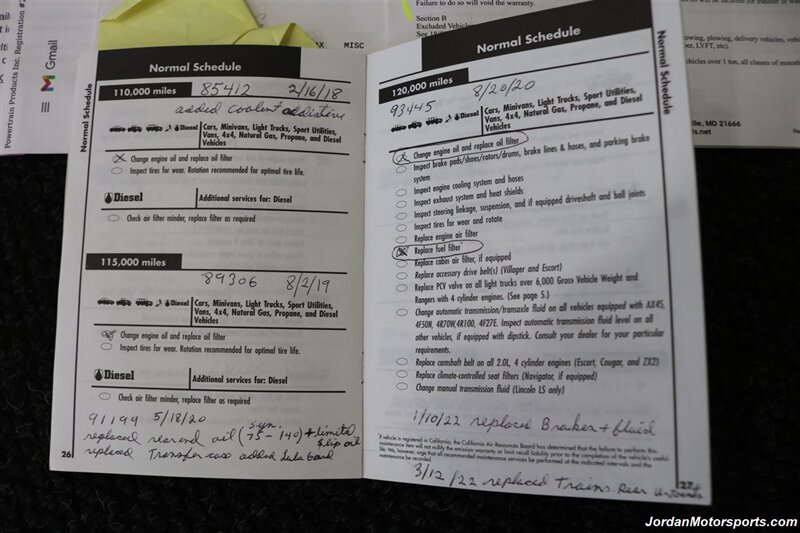 Failure to do so will void the warranty.
Section B
Excluded Vehic
owing, plowsing, delivery vehicles,
er, LYFT, etc)
hicles over 1 ton, all classes of motorh
lle, MD 21666
ts.net
Powertrain Products Inc. Registration #2
Gmail
MISC
Normal Schedule
Normal Schedule
110,000 miles 85412 2/16/18
added coolant additive
Diesel Cars, Minivans, Light Trucks, Sport Utilities,
Vans, 4x4, Natural Gas, Propane, and Diesel
Vehicles
Change engine oil and replace oil filter
Inspect tires for wear. Rotation recommended for optimal tire life.
Diesel Additional services for: Diesel
Check air filter minder, replace filter as required
115,000 miles
89306 8/2/19
Diesel Cars, Minivans, Light Trucks, Sport Utilities,
Vans, 4x4, Natural Gas, Propane, and Diesel
Vehicles
Change engine oil and replace oil filter
Inspect tires for wear. Rotation recommended for optimal tire life.
Diesel Additional services for: Diesel
Check air filter minder, replace filter as required
91199 5/18/20
replaced rear end oil (syn. 75-140) + limited
slip oil
replaced Transfer case added Lube Gard
26
Normal Schedule
Normal Schedule
120,000 miles 8/20/20
93445
Diesel Cars, Minivans, Light Trucks, Sport Utilities,
Vans, 4x4, Natural Gas, Propane, and Diesel
Vehicles
Change engine oil and replace oil filter
Inspect brake pads/shoes/rotors/drums, brake lines & hoses, and parking brake
system
Inspect engine cooling system and hoses
Inspect exhaust system and heat shields
Inspect steering linkage, suspension, and if equipped driveshaft and ball joints
Inspect tires for wear and rotate
Replace engine air filter
Replace fuel filter
Replace cabin air filter, if equipped
Replace accessory drive belt(s) (Villager and Escort)
Replace PCV valve on all light trucks over 6,000 Gross Vehicle Weight and
Rangers with 4 cylinder engines. (See page 5.)
Change automatic transmission/transaxle fluid on all vehicles equipped with AX4S,
4F50N, 4R70W,4R100, 4F27E. Inspect automatic transmission fluid level on all
other vehicles, if equipped with dipstick. Consult your dealer for your particular
requirements.
Replace camshaft belt on all 2.0L, 4 cylinder engines (Escort, Cougar, and ZX2)
Replace climate-controlled seat filters (Navigator, if equipped)
Change manual transmission fluid (Lincoln LS only)
1/10/22 replaced Brakes + fluid
If vehicle is registered in California, the California Air Resources Board has determined that the failure to perform this
maintenance item will not nullify the emission warranty or limit recall liability prior to the completion of the vehicle's useful
life. We, however, urge that all recommended maintenance services be performed at the indicated intervals and the
maintenance be recorded.
27
3/12/22 replaced Trans. Rear
JordanMotorsports.com